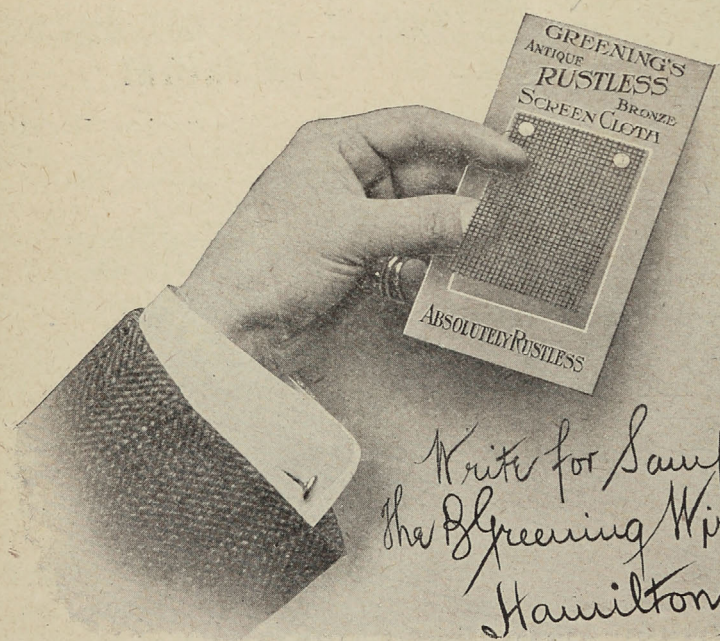 GREENING'S
ANTIQUE
RUSTLESS
BRONZE
SCREEN CLOTH
ABSOLUTELY RUSTLESS
Write for
The B Greening
Hamilton